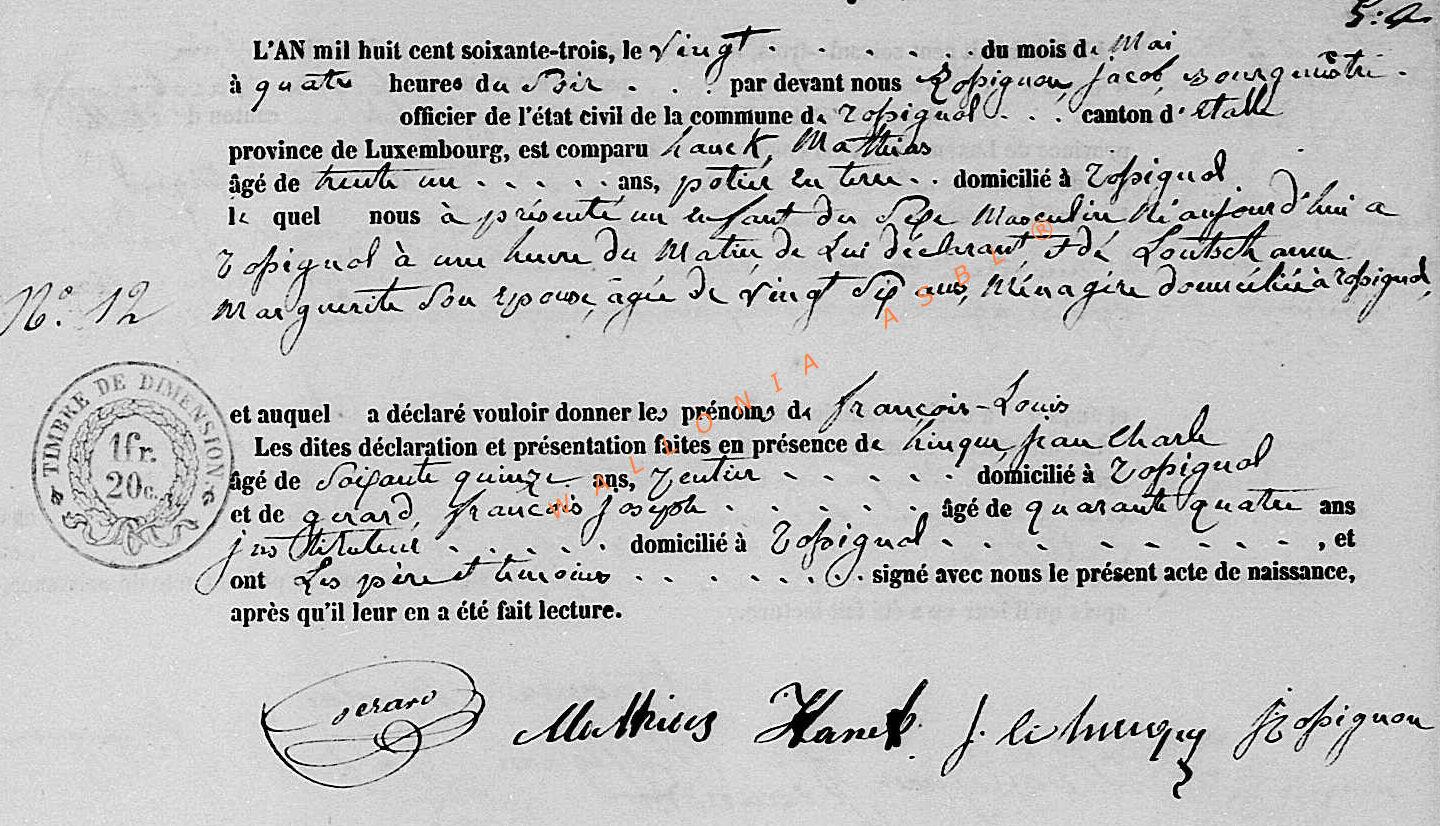 5: 
L'AN mil huit cent soixante-trois, le Vingt . . . . . . . du mois de Mai
à quatre heures du Soir . . . par devant nous Rossignon, Jacob, Bourguestre .
officier de l'état civil de la commune de rossignol . . . canton d'etalle
province de Luxembourg, est comparu hanck, Mathias
âgé de trente un . . . . . ans, potier en terre . . domicilié à rossignol
le quel nous à présenté un enfant du Sexe Masculin Né aujourd'hui a
rossignol à une heure du Matin, de Lui déclarant, et de Loutsch anne
Marguerite Son epouse, âgée de vingt Six ans, Ménagère domiciliée à rossignol,
N° 12
TIMBRE DE DIMENSION.
1fr.
20c.
et auquel a déclaré vouloir donner les prénoms de françois-Louis
Les dites déclaration et présentation faites en présence de hinque, jean Charle
âgé de Soixante quinze ans, rentier . . . . . domicilié à rossignol
et de gerard, françois joseph . . . . . . âgé de quarante quatre ans
institituteur . . . . . domicilié à rossignol . . . . . . . . , et
ont Les père et temoins . . . . . . . signé avec nous le présent acte de naissance,
après qu'il leur en a été fait lecture.
gerard Mathias Hanck J. Rossignon
WALLONIA ASBL ®